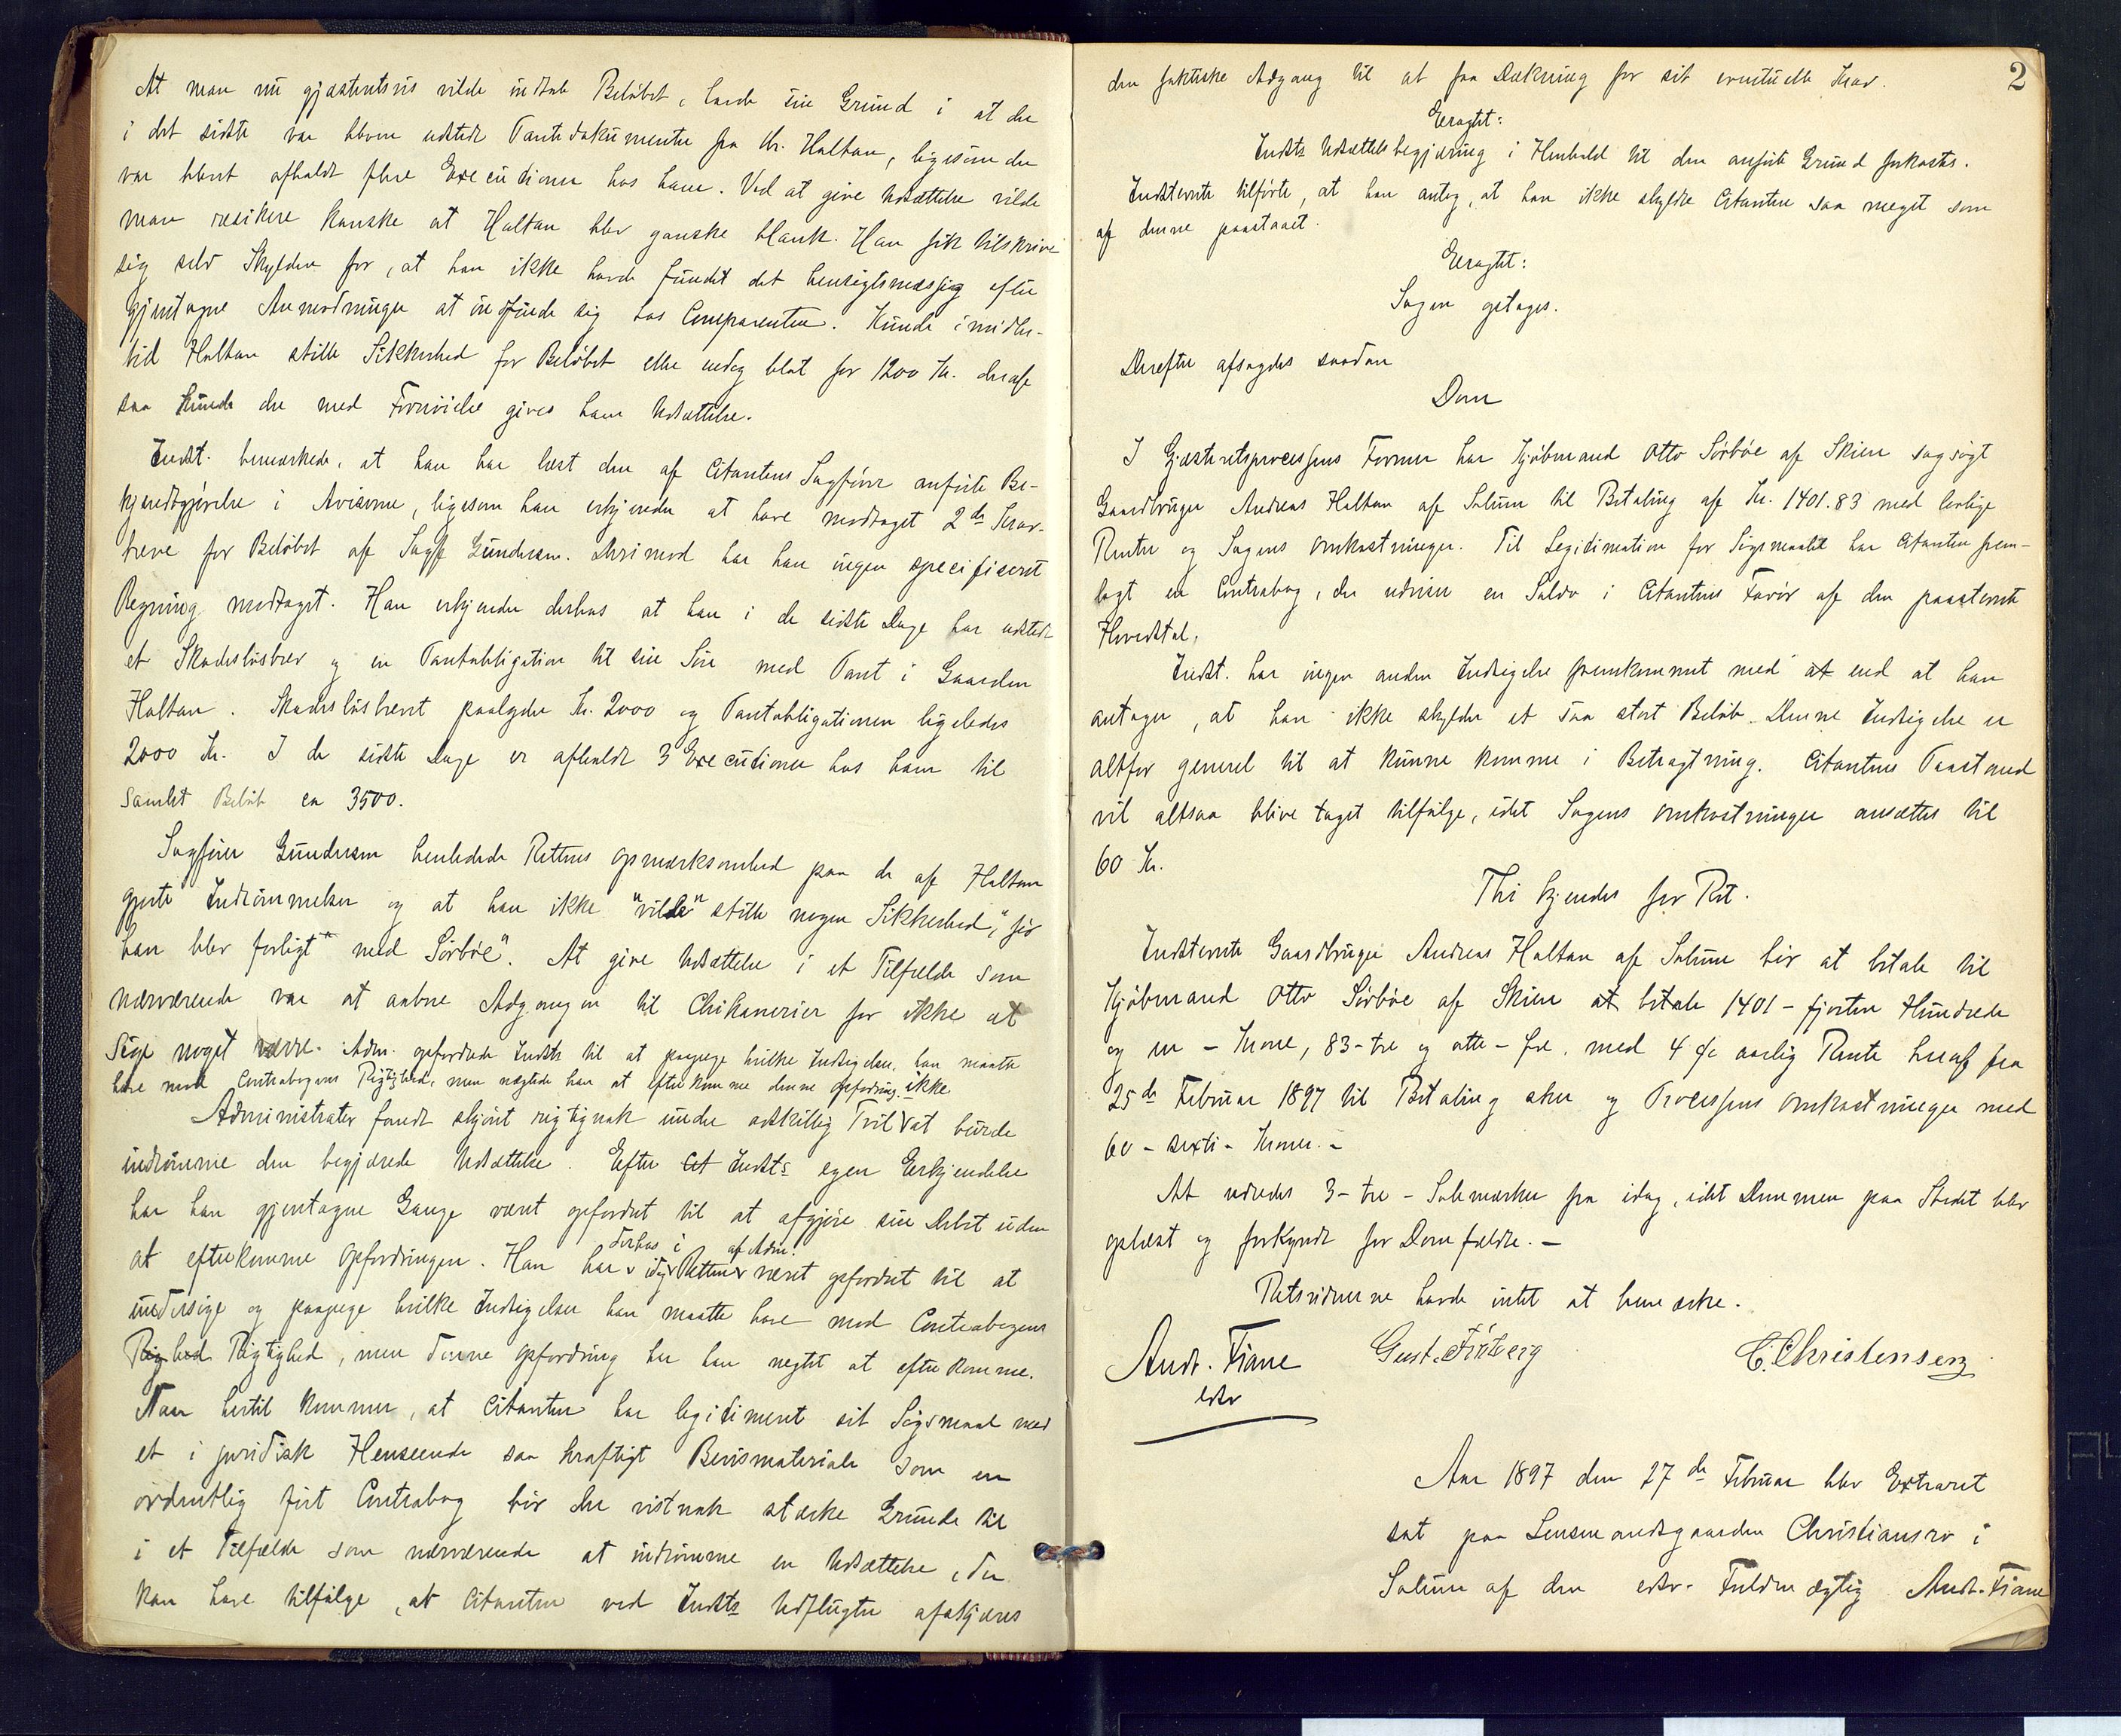 At man nu gjæsteretsvis vilde indtale Beløbet, havde sin Grund i at der
i det sidste var bleven udstedt Pantedokumenter fra Hr. Haltan, ligesom der
var blevet afholdt flere Executioner hos ham. Ved at give Udsættelse vilde
man resikere kanske at Haltan blev ganske blank. Han fik tilskrive
sig selv Skylden for, at han ikke havde fundet det hensigtsmæssig efter
gjentagne Anmodninger at indfinde sig hos Comparenten. Kunde imidler-
tid Haltan stille Sikkerhed for Beløbet eller endog blot for 1200 Kr. deraf
saa kunde der med Fornøielse gives ham Udsættelse.
Indst. bemærkede, at han har læst den af Citantens Sagfører anførte Be-
kjendtgjørelse i Aviserne, ligesom han erkjender at have modtaget 2de Krav-
breve for Beløbet af Sagf. Gundersen. Derimod har han ingen specifiseret
Regning modtaget. Han erkjender derhos at han i de sidste Dage har udstedt
et Skadesløsbrev og en Pantobligation til sin Søn med Pant i Gaarden
Haltan. Skadesløsbrevet paalyder Kr. 2000 og Pantobligationen ligeledes
2000 Kr. I de sidste Dage er afholdt 3 Executioner hos ham til
samlet Beløb ca 3500.
Sagfører Gundersen henledede Rettens Opmærksomhed paa de af Haltan
gjorte Indrømmelser og at han ikke "vilde" stille nogen Sikkerhed, "før
han blev forligt" med Sørbøe". At give Udsættelse i et Tilfælde som
nærværende var at aabne Adgangen til Chikanerier for ikke at
sige noget værre. Adm. opfordrede Indst. til at paapege hvilke Indsigelser han maatte
have mod Contrabogens Rigtighed, men nægtede han at efterkomme denne Opfordring. ikke
Administrator fandt skjønt rigtignok under adskillig Tvil at burde
indrømme den begjærede Udsættelse. Efter Cit Indsts egen Erkjendelse
har han gjentagne Gange været opfordret til at afgjøre sin Debet uden
at efterkomme Opfordringen. Han har derhos i idag Retten af Adm. været opfordret til at
undersige og paapege hvilke Indsigelser han maatte have mod Contrabogens
Righed Rigtighed, men denne Opfordring har han negtet at efterkomme.
Naar hertil kommer, at Citanten har legitimeret sit Søgsmaal med
et i juridisk Henseende saa kraftigt Bevismateriale som en
ordentlig ført Contrabog bør der vistnok stærke Grunde til
i et Tilfælde som nærværende at indrømme en Udsættelse, der
kan have tilfølge, at Citanten ved Indsts Udflugter afskjæres
2
den faktiske Adgang til at faa Dækning for sit eventuelle Krav.
Eragtet:
Indsts Udsættelsesbegjæring i Henhold til den anførte Grund forkastes.
Indstevnte tilførte, at han antog, at han ikke skyldte Citanten saa meget som
af denne paastaaet.
Eragtet:
Sagen optages.
Derefter afsagdes saadan
Dom
I Gjæsteretsprocessens Former har Kjøbmand Otto Sørbøe af Skien sagsøgt
Gaardbruger Andreas Haltan af Solum til Betaling af Kr. 1401.83 med lovlige
Renter og Sagens Omkostninger. Til Legitimation for Søgsmaalet har Citanten frem-
lagt en Contrabog, der udviser en Saldo i Citantens Favør af den paastevnte
Hovedstol.
Indst. har ingen anden Indsigelse fremkommet med at end at han
antager, at han ikke skylder et saa stort Beløb. Denne Indsigelse er
altfor generel til at kunne komme i Betragtning. Citantens Paastand
vil altsaa blive taget tilfølge, idet Sagens Omkostninger ansættes til
60 Kr.
Thi kjendes for Ret.
Indstevnte Gaardbruger Andreas Haltan af Solum bør at betale til
Kjøbmand Otto Sørbøe af Skien at betale 1401 - fjorten Hundrede
og en - Krone, 83 - tre og otti - Øre, med 4 % aarlig Rente heraf fra
25de Februar 1897 til Betaling sker og Processens Omkostninger med
60 - sexti - Kroner. -
At udredes 3 - tre - Solemærker fra idag, idet Dommen paa Stedet blev
oplæst og forkyndt for Domfældte. -
Retsvidnerne havde intet at bemærke.
Andr. Fiane
edsv
Gust. Fürberg
C. Christensen
Aar 1897 den 27de Februar blev Extraret
sat paa Lensmandsgaarden Christiansro i
Solum af den edsv. Fuldmægtig Andr. Fiane